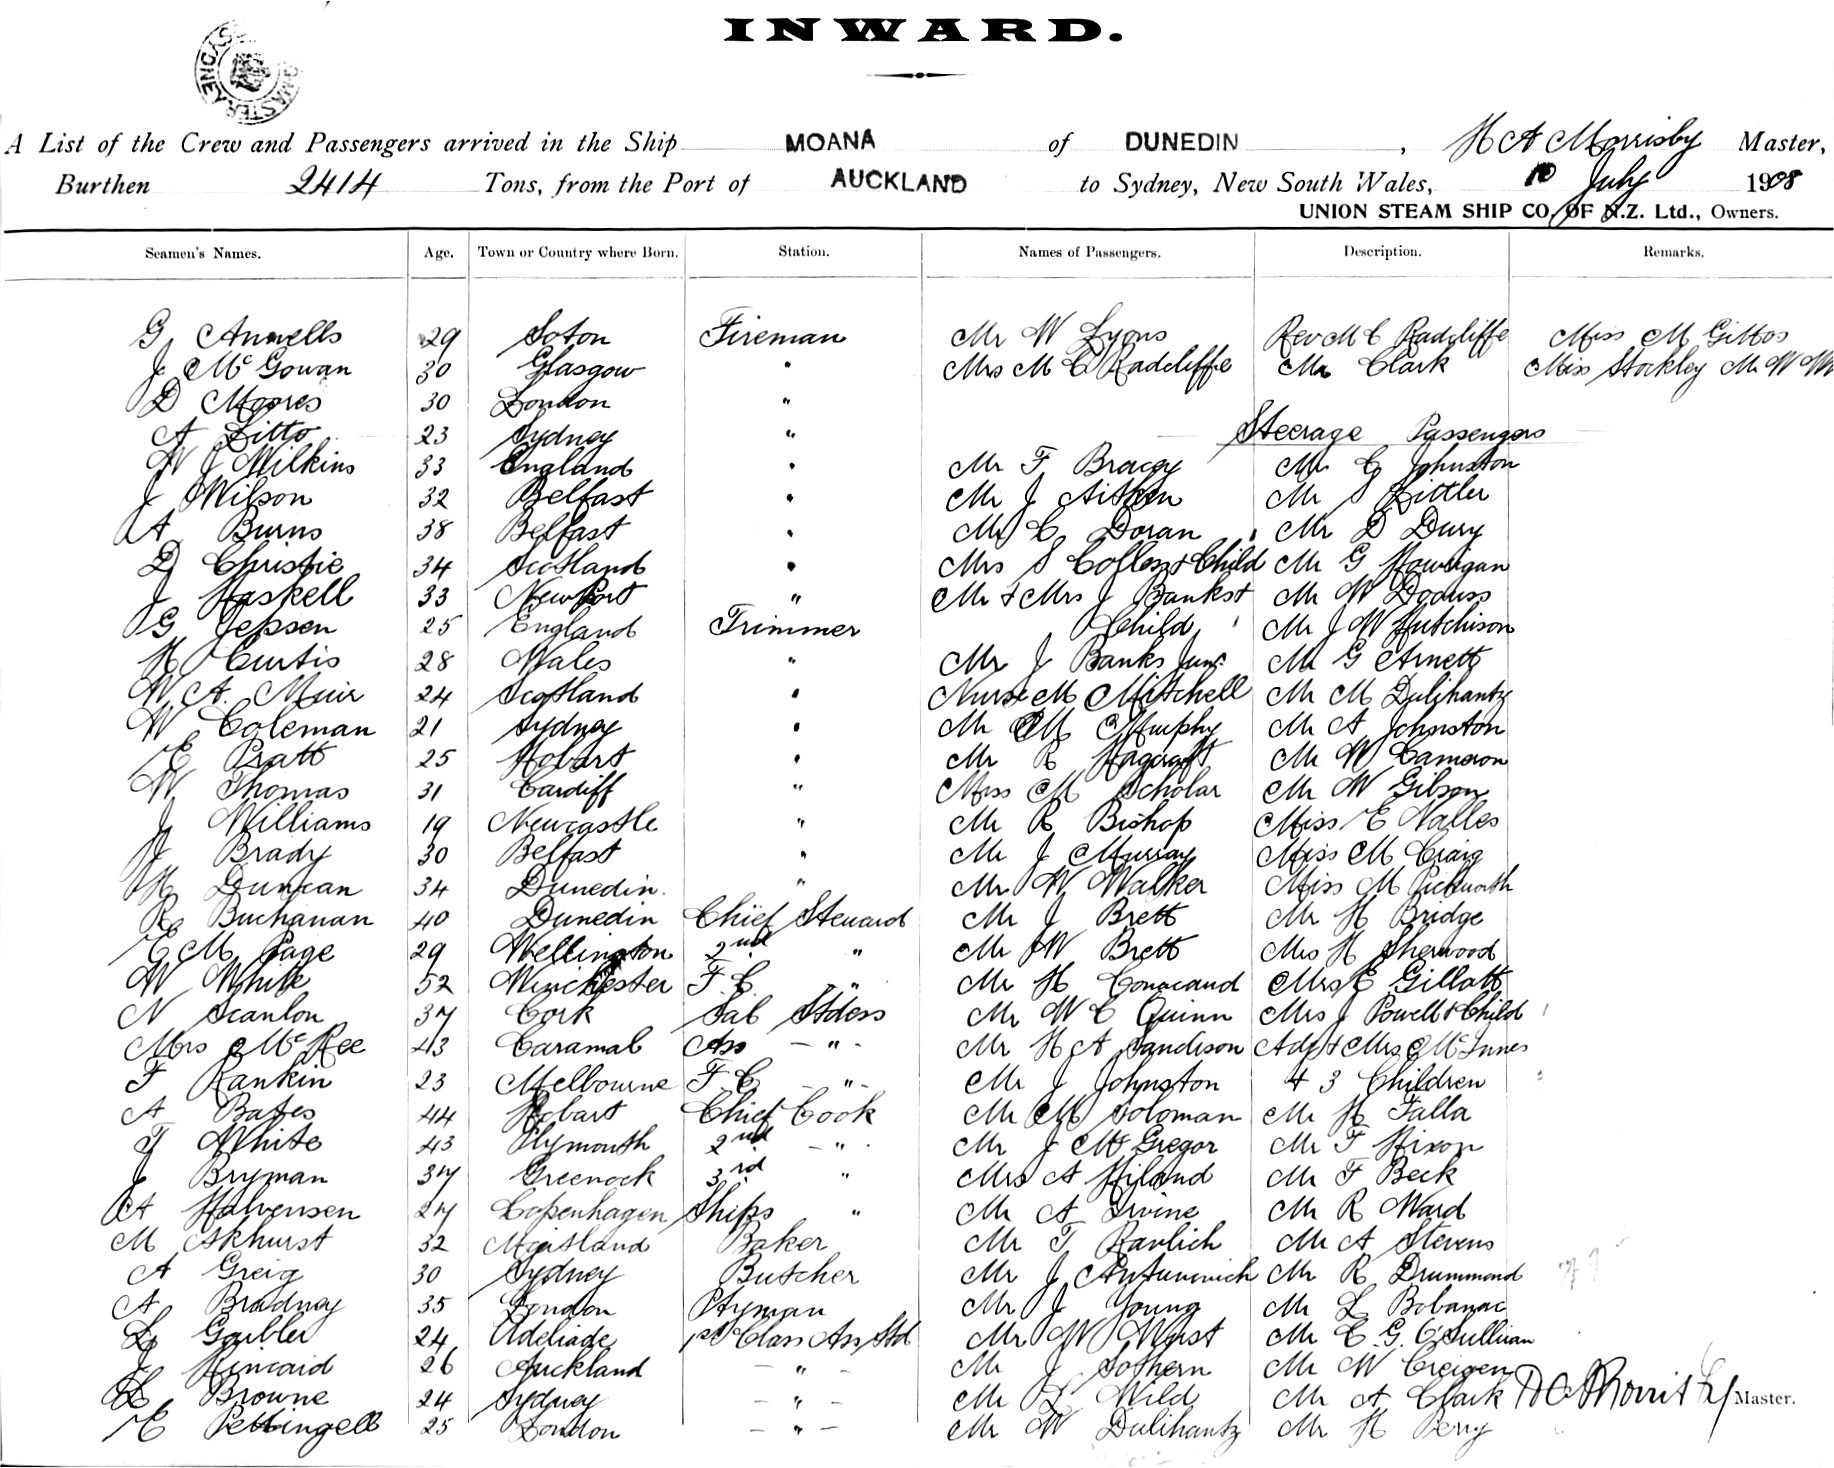 INWARD.
SYDNEY
A List of the Crew and Passengers arrived in the Ship MOANA of DUNEDIN, H A Morrisby Master,
Burthen 2414 Tons, from the Port of AUCKLAND to Sydney, New South Wales, 10 July 1908
UNION STEAM SHIP CO. OF N.Z. Ltd., Owners.
Seamen's Names. Age. Town or Country where Born. Station. Names of Passengers. Description. Remarks.
G Annells 29 Soton Fireman Mr W Lyons Rev M C Radcliffe Miss M Gibbos
J McGowan 30 Glasgow " Mrs M C Radcliffe Mr Clark Miss Stockley Mr W
D Moores 30 London "
A Ditto 23 Sydney " Steerage Passengers
W J Wilkins 33 England " Mr F Bracey Mr C Johnston
J Wilson 32 Belfast " Mr J Aitken Mr S Littler
A Burns 38 Belfast " Mr C Doran Mr D Dury
D Christie 34 Scotland " Mrs S Child Mr G
J Haskell 33 Newport " Mr & Mrs J Banks & Mr W
G Jepsen 25 England Trimmer Child Mr J W Hutchison
H Curtis 28 Wales " Mr J Banks Junr Mr G Arnett
W. A. Muir 24 Scotland " Nurse M Mitchell Mr M Dulihantz
W Coleman 21 Sydney " Mr M Murphy Mr A Johnston
E Pratt 25 Hobart " Mr R Haycraft Mr W Cameron
W Thomas 31 Cardiff " Miss M Scholar Mr W Gibson
J Williams 19 Newcastle " Mr R Bishop Miss E Nalles
J Brady 30 Belfast " Mr J Murray Miss M Craig
H Duncan 34 Dunedin " Mr W Walker Miss M Pickworth
R Buchanan 40 Dunedin Chief Steward Mr J Brett Mr H Bridge
E M Page 29 Wellington 2nd " Mr W Brett Mrs H Sherwood
W White 52 Winchester F. C. " Mr H Mrs E Gillatt
N Scanlon 37 Cork Sal Stdess Mr W C Quinn Mrs J Powell & Child
Mrs McKee 43 Caramal Ass " Mr H A Sandison Adj & Mrs McInnes
F Rankin 23 Melbourne F. C. " Mr J Johnston & 3 Children
A Bates 44 Hobart Chief Cook Mr M Soloman Mr H Falla
T White 43 Plymouth 2nd " Mr J McGregor Mr F Hixon
J Bryman 37 Greenock 3rd " Mrs A Hiland Mr F Beck
A Halvensen 27 Copenhagen Ships " Mr A Irvine Mr R Ward
M Akhurst 32 Maitland Baker Mr T Ravlich Mr A Stevens
A Greig 30 Sydney Butcher Mr J Antunovich Mr R Drummond
A Bradney 35 London Ptryman Mr J Young Mr L Bobanac
L Gaibler 24 Adeliade 1st Class Ass Std Mr W West Mr C G O'Sullivan
J Kincaid 26 Auckland " Mr J Sothern Mr W Creigen
H Browne 24 Sydney " Mr L Wild Mr A Clark H A Morrisby Master.
E Pettingell 25 London " Mr W Dulihantz Mr H Perry